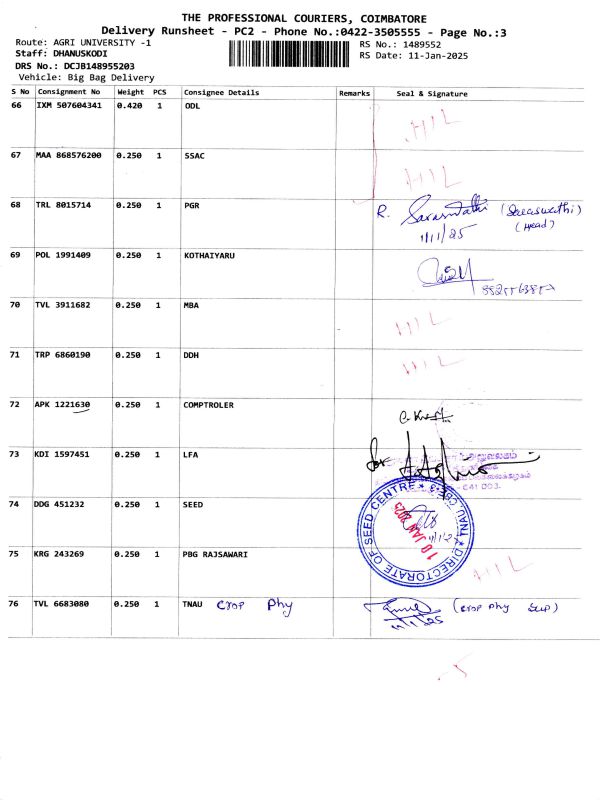 THE PROFESSIONAL COURIERS, COIMBATORE
Delivery Runsheet - PC2 - Phone No.:0422-3505555 - Page No.:3
Route: AGRI UNIVERSITY -1
RS No.: 1489552
Staff: DHANUSKODI
RS Date: 11-Jan-2025
DRS No.: DCJB148955203
Vehicle: Big Bag Delivery
S No Consignment No Weight PCS Consignee Details Remarks Seal & Signature
66 IXM 507604341 0.420 1 ODL
67 MAA 868576200 0.250 1 SSAC
68 TRL 8015714 0.250 1 PGR R. Saraswathi (Saraswathi)
(Head)
11/1/25
69 POL 1991409 0.250 1 KOTHAIYARU
70 TVL 3911682 0.250 1 MBA
71 TRP 6860190 0.250 1 DDH
72 APK 1221630 0.250 1 COMPTROLER
73 KDI 1597451 0.250 1 LFA for
641 003.
74 DDG 451232 0.250 1 SEED
DIRECTORATE OF SEED CENTRE ★ TNAU CBE-3 ★
10 JAN 2025
75 KRG 243269 0.250 1 PBG RAJSAWARI
76 TVL 6683080 0.250 1 TNAU Crop Phy (Crop Phy Sup)
11/1/25